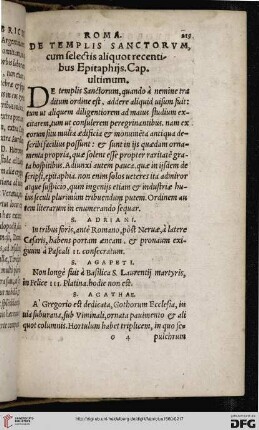 ROMA. 215
DE TEMPLIS SANCTORVM,
cum selectis aliquot recenti-
bus Epitaphijs. Cap.
ultimum.
DE templis Sanctorum, quando à nemine tra
ditum ordine est, addere aliquid uisum fuit:
tum ut aliquem diligentiorem ad maius studium ex-
citarem, tum ut consulerem peregrinantibus. nam ex
eorum situ multa ædificia & monumēta antiqua de-
scribi facilius possunt: & sunt in ijs quædam orna-
menta propria, quæ solent esse propter raritatē gra-
ta hospitibus. Adiunxi autem pauca, quæ in ijssem de
scripsi, epitaphia. non enim solos ueteres ita admiror
atque suspicio, quin ingenijs etiam & industriæ hu-
ius seculi plurimum tribuendum putem. Ordinem au
tem literarum in enumerando sequar.
S. ADRIANI.
In tribus foris, antè Romano, pòst Neruæ, à latere
Cæsaris, habens portam æneam, & pronaum exi-
guum à Pascali II. consecratum.
S. AGAPETI.
Non longè fuit à Basilica S. Laurentij martyris,
in Felice III. Platina. hodie non est.
S. AGATHAE.
A' Gregorio est dedicata, Gothorum Ecclesia, in
uia suburana, sub Viminali, ornata pauimento & ali
quot columnis. Hortulum habet triplicem, in quo sex
o 4 pulchrum
UNIVERSITÄTS-
BIBLIOTHEK
HEIDELBERG
DFG